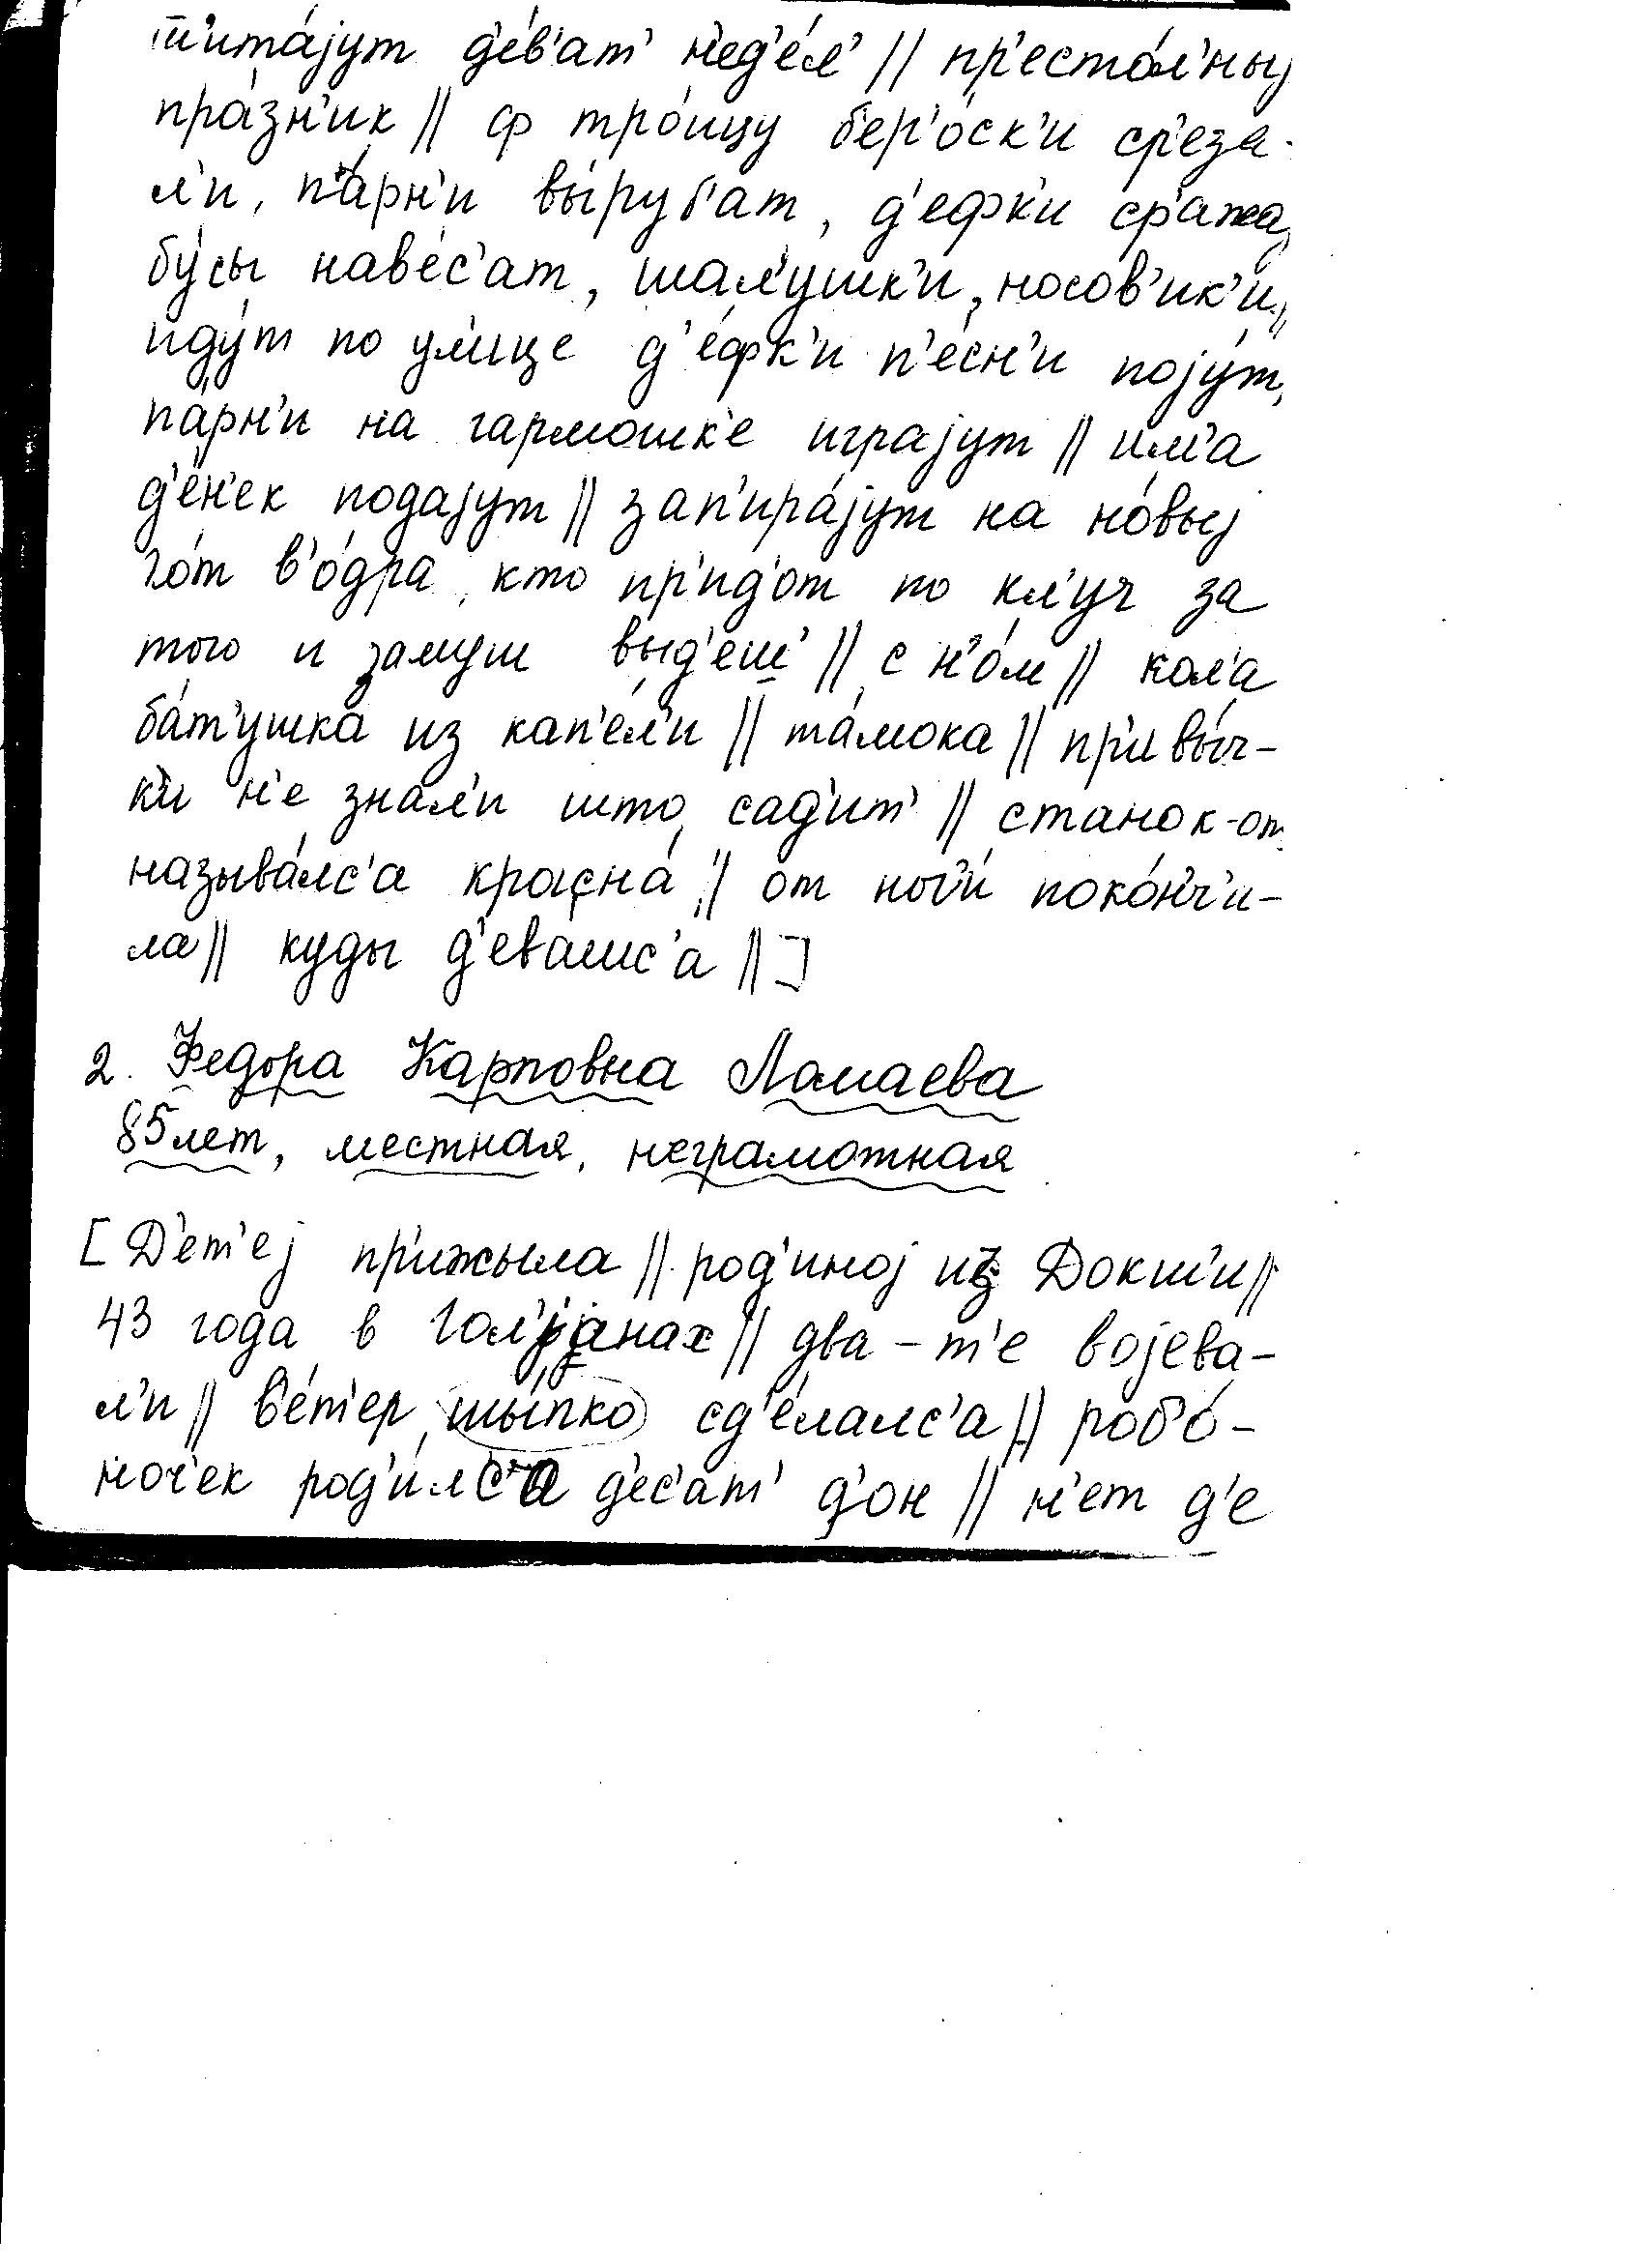 ш'ита́јут д'е́в'ат' н'ед'е́л' // пр'есто́л'ныј
пра́зн'ик // ф тро́ицу б'ер'о́ск'и ср'еза-
л'и, па́рн'и вы́руб'ат, д'ефк'и ср'ажа,
бу́сы наве́с'ат, шал'ушк'и, носов'ик'и //
иду́т по ул'ице д'е́фк'и п'е́сн'и појут,
па́рн'и на гармошк'е играјут // ил'а
д'е́н'ек подајут // зап'ира́јут на но́выј
го́т в'о́дра, кто пр'ид'от по кл'уч за
того и замуш выд'еш' // с н'о́м // кол'а
ба́т'ушка из кап'е́л'и // та́мока // пр'ивы́ч-
к'и н'е знал'и што сад'ит' // станок-от
называ́лс'а кросна́ // от ног'и́ поко́нч'и-
ла // куды д'евалис'а // ]
2. Федора Карповна Ламаева
85 лет, местная, неграмотная
[ Д'ет'еј пр'ижыла // род'иној из Докш'и //
43 года в Гол'јанах // два-т'е војева-
л'и // в'е́т'ер шы́пко сд'е́лалс'а // роб'о́-
ноч'ек род'и́лс'а д'ес'ат' д'он // н'ет д'е